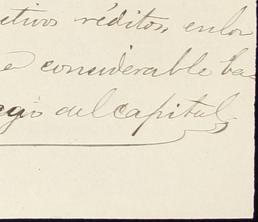 etivos réditos, en los
e considerable ba-
egio del capital,